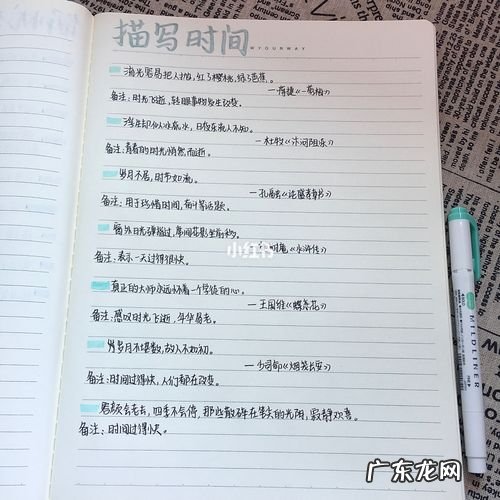 描写时间
YOURWAY
流光容易把人抛,红了樱桃,绿了芭蕉。
—蒋捷《一剪梅》
备注:时光飞逝,转眼事物发生改变。
浮生却似冰底水,日夜东流人不知。
—杜牧《汴河阻冻》
备注:青春的时光悄然而逝。
岁月不居,时节如流。
—孔融《论盛孝章书》
备注:用于珍惜时间,奋斗等话题。
窗外日光弹指过,席间花影坐前移。
《水浒传》
小红书
备注:表示一天过得很快。
真正的大师永远怀着一个学徒的心。
—王国维《蝶恋花》
备注:感叹时光飞逝,年华易老。
岁月不堪数,故人不如初。
备注:时间过得快,人们都在改变。
容颜会老去,四季不会停,那些散碎在
的光阴,寂静欢喜。
备注:时间过得快。
MILDLINER
广东龙网